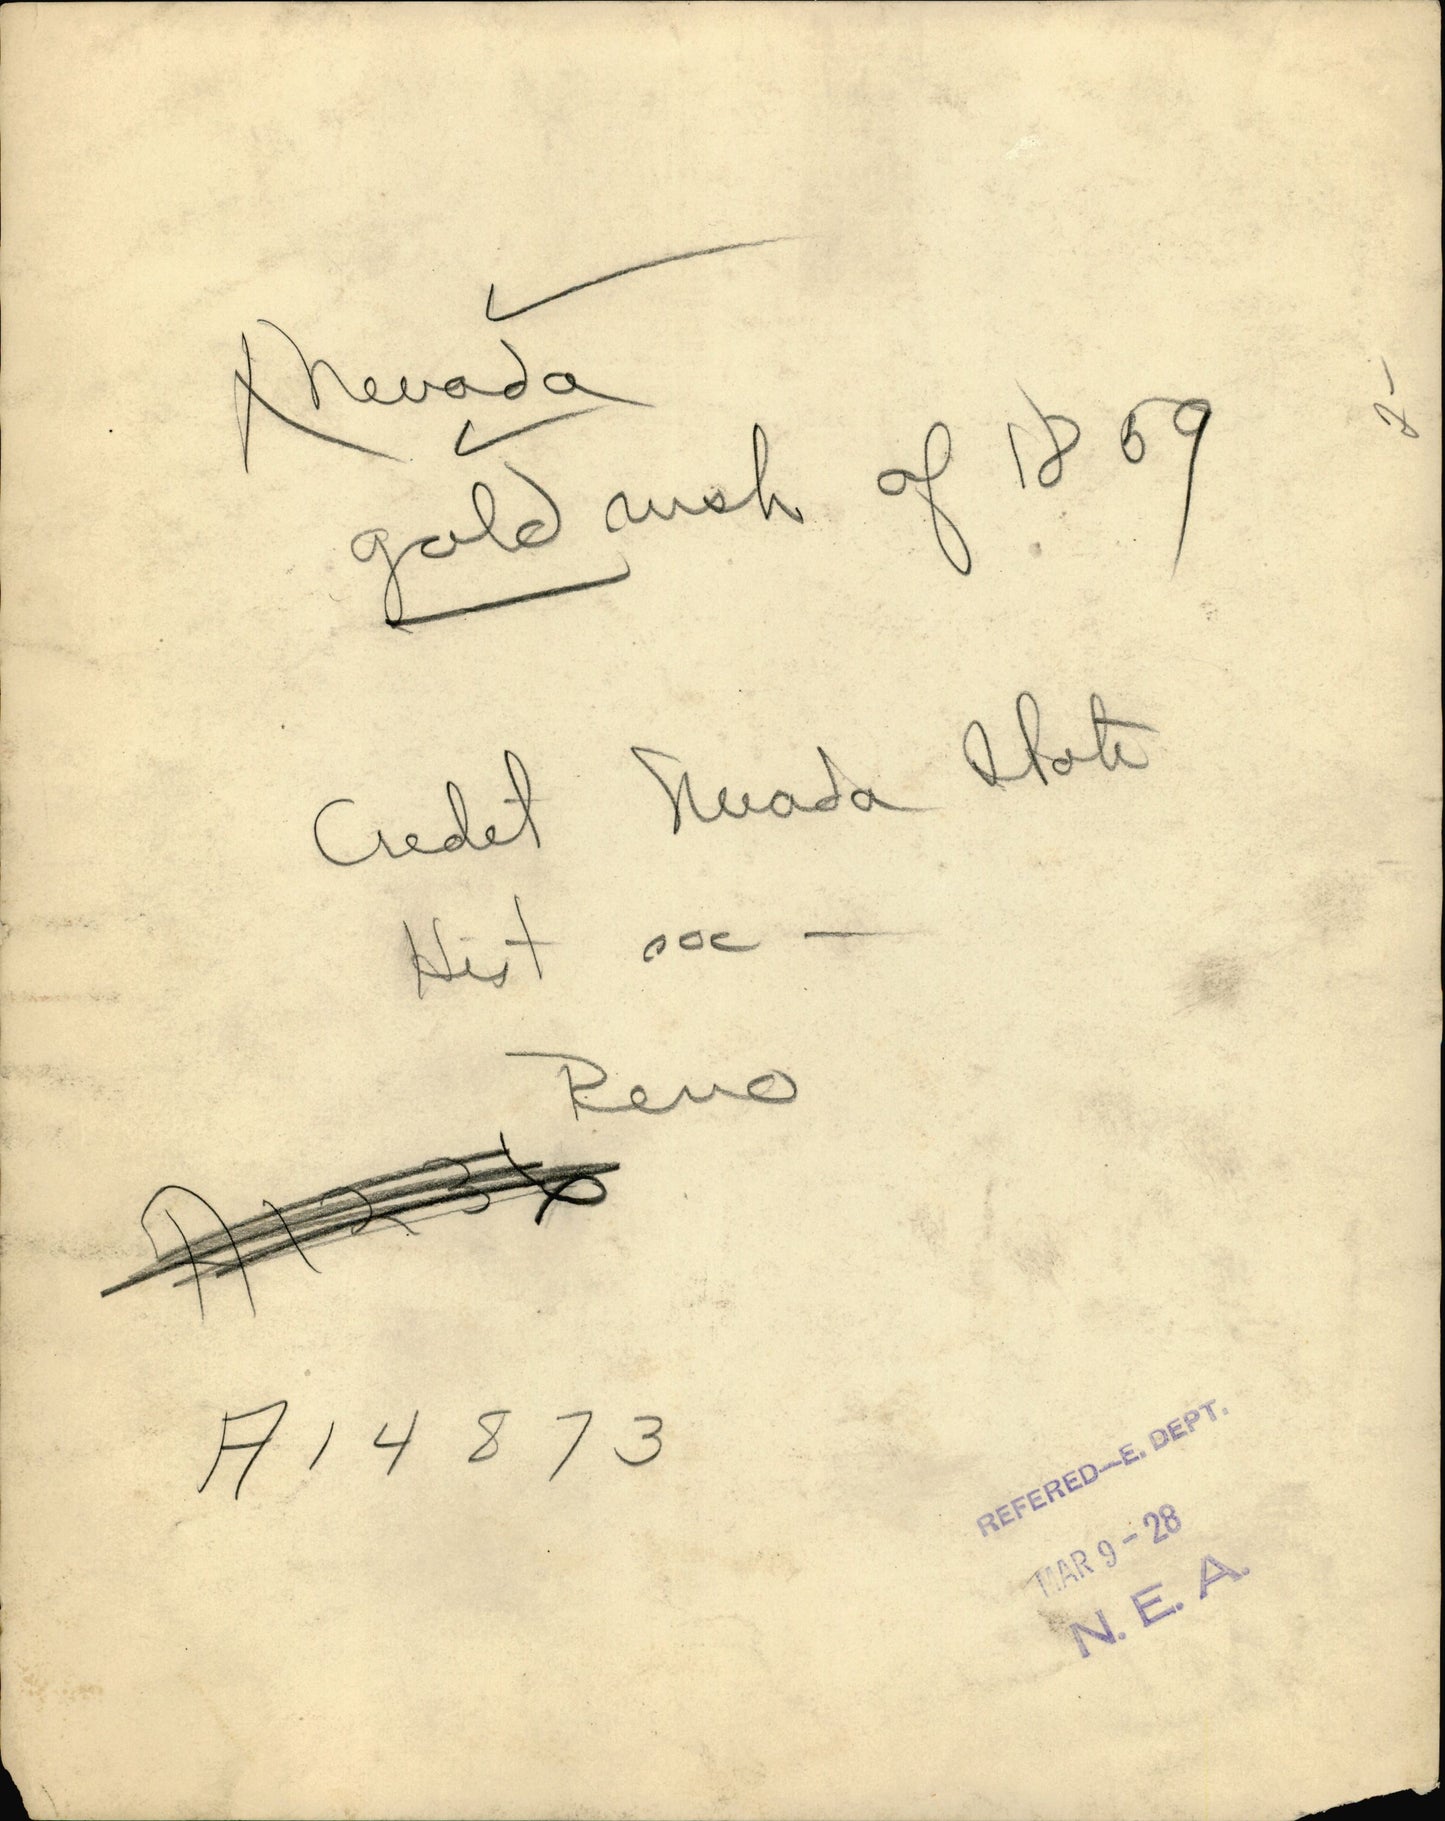 Nevada
gold rush of 1859
Credit Nevada State
Hist soc —
Reno
A14873
REFERED—E. DEPT.
MAR 9-28
N. E. A.